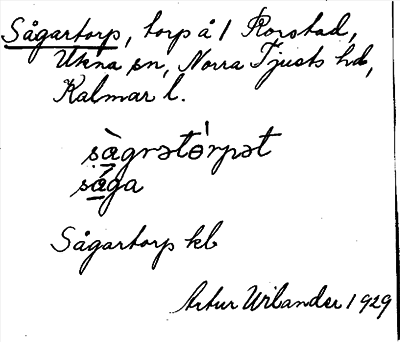 Sågartorp, torp å 1 Rorstad,
Ukna sn, Norra Tjusts hd,
Kalmar l.
sàgrətórpət
såga
Sågartorp kb
Artur Wilander 1929